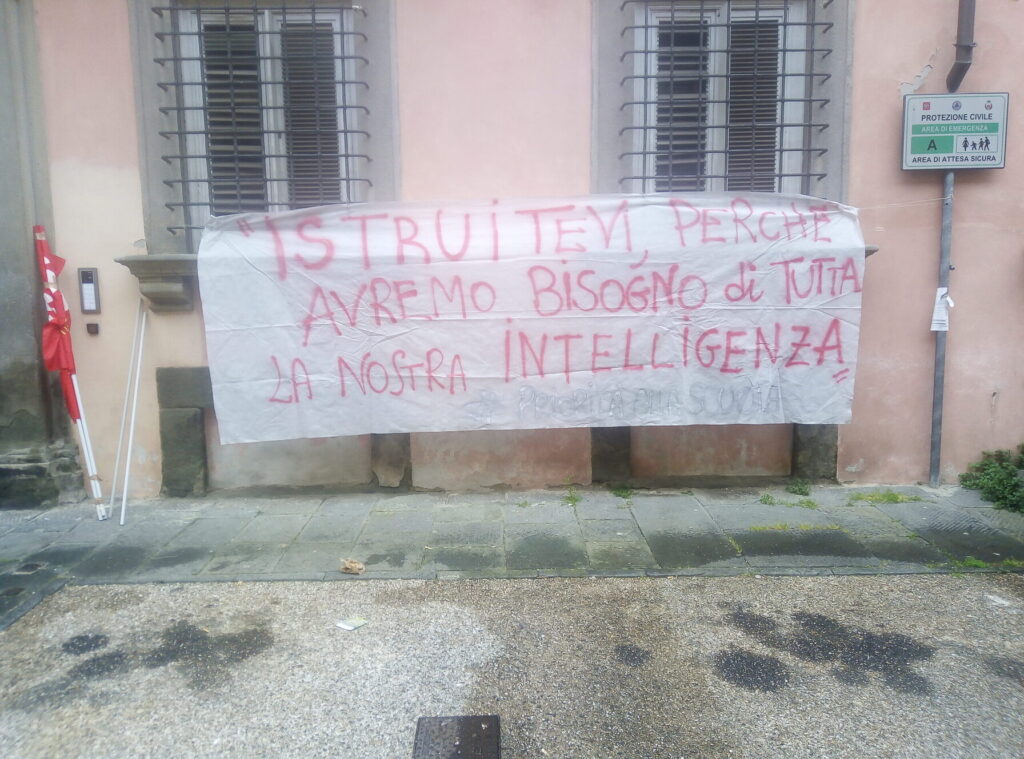 "ISTRUiTEVI, PERCHÈ
AVREMO BISOGNO di TUTTA
LA NOSTRA INTELLIGENZA"
PRIORITÀ ALLA SCUOLA
PROTEZIONE CIVILE
AREA DI EMERGENZA
A
AREA DI ATTESA SICURA